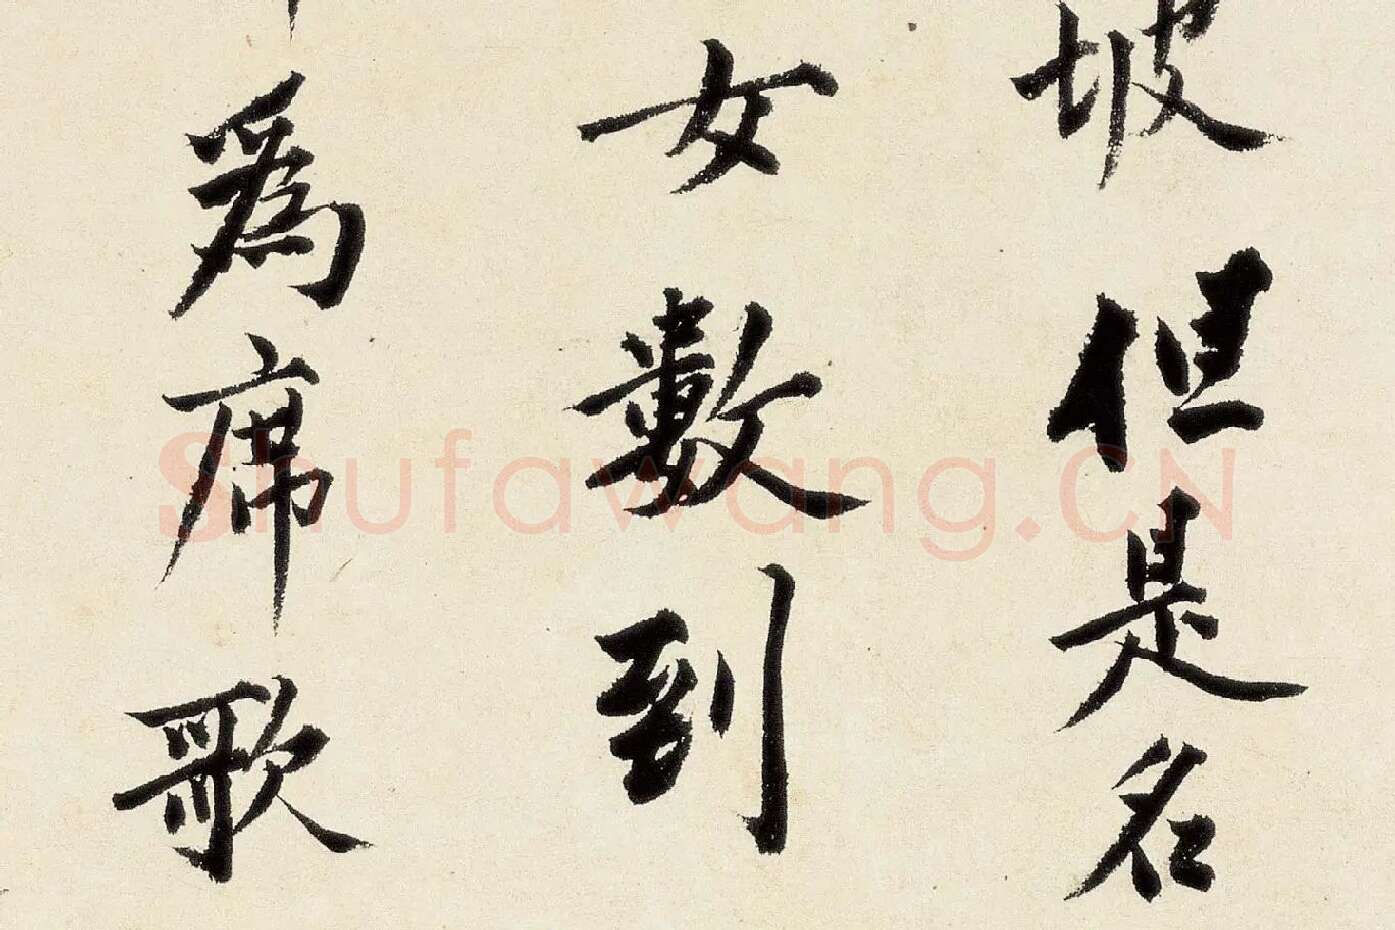 坡但是名
女數到
為席歌
Shufawang.CN